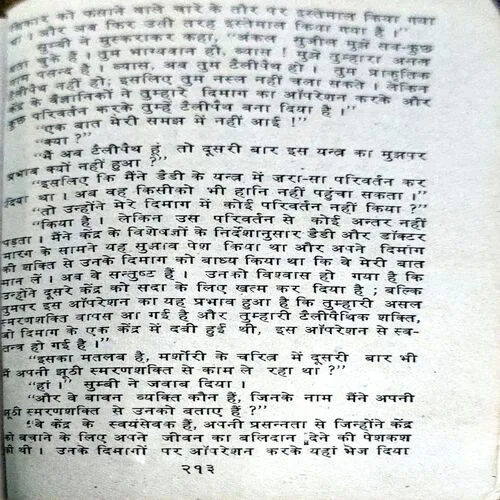 शिकार को फंसाने वाले चारे के तौर पर इस्तेमाल किया गया
था । और अब फिर उसी तरह इस्तेमाल किया गया है ।”
सुम्बी ने मुस्कराकर कहा, “अंकल सुजील मुझे सब-कुछ
बता चुके हैं । तुम भाग्यवान हो, व्यास ! मुझे तुम्हारा असल
नाम पसन्द है । व्यास, अब तुम टैलीपैथ हो । तुम प्राकृतिक
टैलीपैथ नहीं हो; इसलिए तुम नस्ल नहीं चला सकते । लेकिन
केंद्र के वैज्ञानिकों ने तुम्हारे दिमाग का ऑपरेशन करके और
कुछ परिवर्तन करके तुम्हें टैलीपैथ बना दिया है ।”
“एक बात मेरी समझ में नहीं आई !”
“क्या ?”
“मैं अब टैलीपैथ हूं तो दूसरी बार इस यन्त्र का मुझपर
प्रभाव क्यों नहीं हुआ ?”
“इसलिए कि मैंने डैडी के यन्त्र में जरा-सा परिवर्तन कर
दिया था । अब वह किसीको भी हानि नहीं पहुंचा सकता ।”
“तो उन्होंने मेरे दिमाग में कोई परिवर्तन नहीं किया ?”
“किया है । लेकिन उस परिवर्तन से कोई अन्तर नहीं
पड़ता । मैंने केंद्र के विशेषज्ञों के निर्देशानुसार डैडी और डॉक्टर
मारग के सामने यह सुझाव पेश किया था और अपने दिमाग
की शक्ति से उनके दिमाग को बाध्य किया था कि वे मेरी बात
मान लें । अब वे सन्तुष्ट हैं । उनको विश्वास हो गया है कि
उन्होंने दूसरे केंद्र को सदा के लिए खत्म कर दिया है ; बल्कि
तुमपर इस ऑपरेशन का यह प्रभाव हुआ है कि तुम्हारी असल
स्मरणशक्ति वापस आ गई है और तुम्हारी टैलीपैथिक शक्ति,
जो दिमाग के एक केंद्र में दबी हुई थी, इस ऑपरेशन से स्व-
तन्त्र हो गई है ।”
“इसका मतलब है, मर्शोरी के चरित्र में दूसरी बार भी
मैं अपनी झूठी स्मरणशक्ति से काम ले रहा था ?”
“हां ।” सुम्बी ने जवाब दिया ।
“और वे बावन व्यक्ति कौन हैं, जिनके नाम मैंने अपनी
झूठी स्मरणशक्ति से उनको बताए हैं ?”
“वे केंद्र के स्वयंसेवक हैं, अपनी प्रसन्नता से जिन्होंने केंद्र
को बचाने के लिए अपने जीवन का बलिदान देने की पेशकश
की थी । उनके दिमागों पर ऑपरेशन करके यहां भेज दिया
२१३